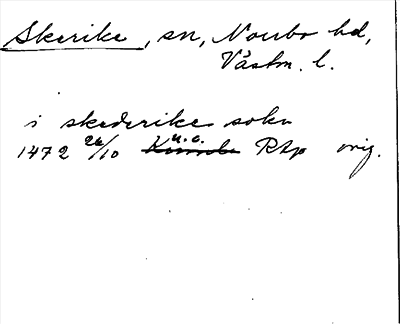 Skerike, sn, Norrbo hd,
Västm. l.
i skederike sokn
1472 26/10 u.o. RAp orig.